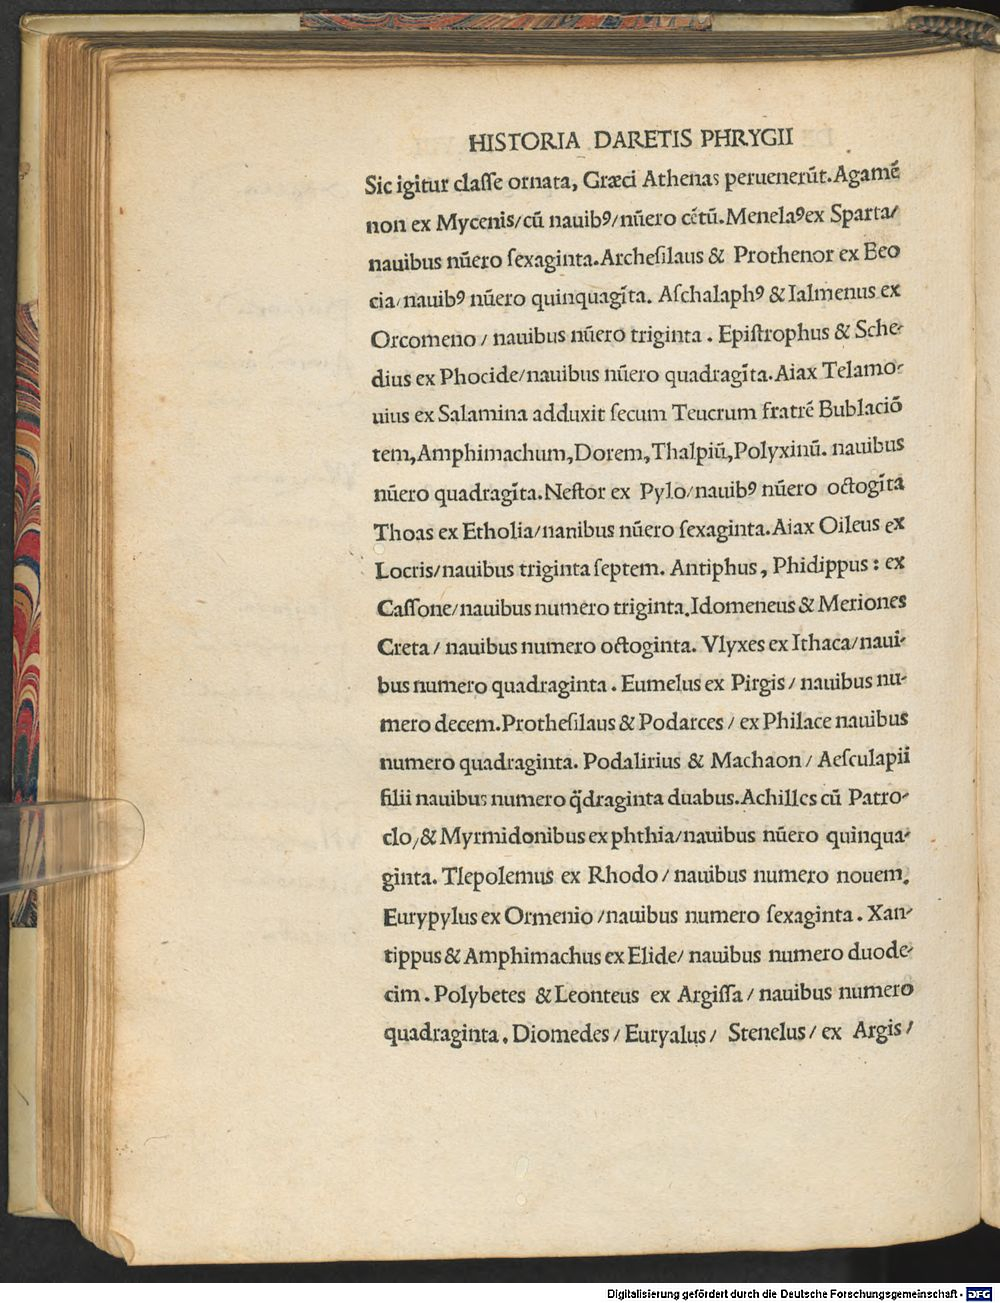 HISTORIA DARETIS PHRYGII
Sic igitur claſſe ornata, Græci Athenas peruenerūt. Agamē
non ex Mycenis/cū nauibꝰ/nūero cētū. Menelaꝰ ex Sparta/
nauibus nūero ſexaginta. Archeſilaus & Prothenor ex Beo
cia/nauibꝰ nūero quinquagīta. Aſchalaphꝰ & Ialmenus ex
Orcomeno / nauibus nūero triginta . Epiſtrophus & Sche-
dius ex Phocide/nauibus nūero quadragīta. Aiax Telamo-
uius ex Salamina adduxit ſecum Teucrum fratrē Bublaciō
tem, Amphimachum, Dorem, Thalpiū, Polyxinū. nauibus
nūero quadragīta. Neſtor ex Pylo/nauibꝰ nūero octogīta
Thoas ex Etholia/nanibus nūero ſexaginta. Aiax Oileus ex
Locris/nauibus triginta ſeptem. Antiphus , Phidippus : ex
Caſſone/nauibus numero triginta. Idomeneus & Meriones
Creta / nauibus numero octoginta. Vlyxes ex Ithaca/naui-
bus numero quadraginta . Eumelus ex Pirgis / nauibus nu-
mero decem. Protheſilaus & Podarces / ex Philace nauibus
numero quadraginta. Podalirius & Machaon / Aeſculapii
filii nauibus numero q̈draginta duabus. Achilles cū Patro-
clo,& Myrmidonibus ex phthia/nauibus nūero quinqua-
ginta. Tlepolemus ex Rhodo / nauibus numero nouem.
Eurypylus ex Ormenio /nauibus numero ſexaginta . Xan-
tippus & Amphimachus ex Elide/ nauibus numero duode-
cim . Polybetes & Leonteus ex Argiſſa / nauibus numero
quadraginta . Diomedes / Euryalus / Stenelus / ex Argis /
Digitalisierung gefördert durch die Deutsche Forschungsgemeinschaft - DFG